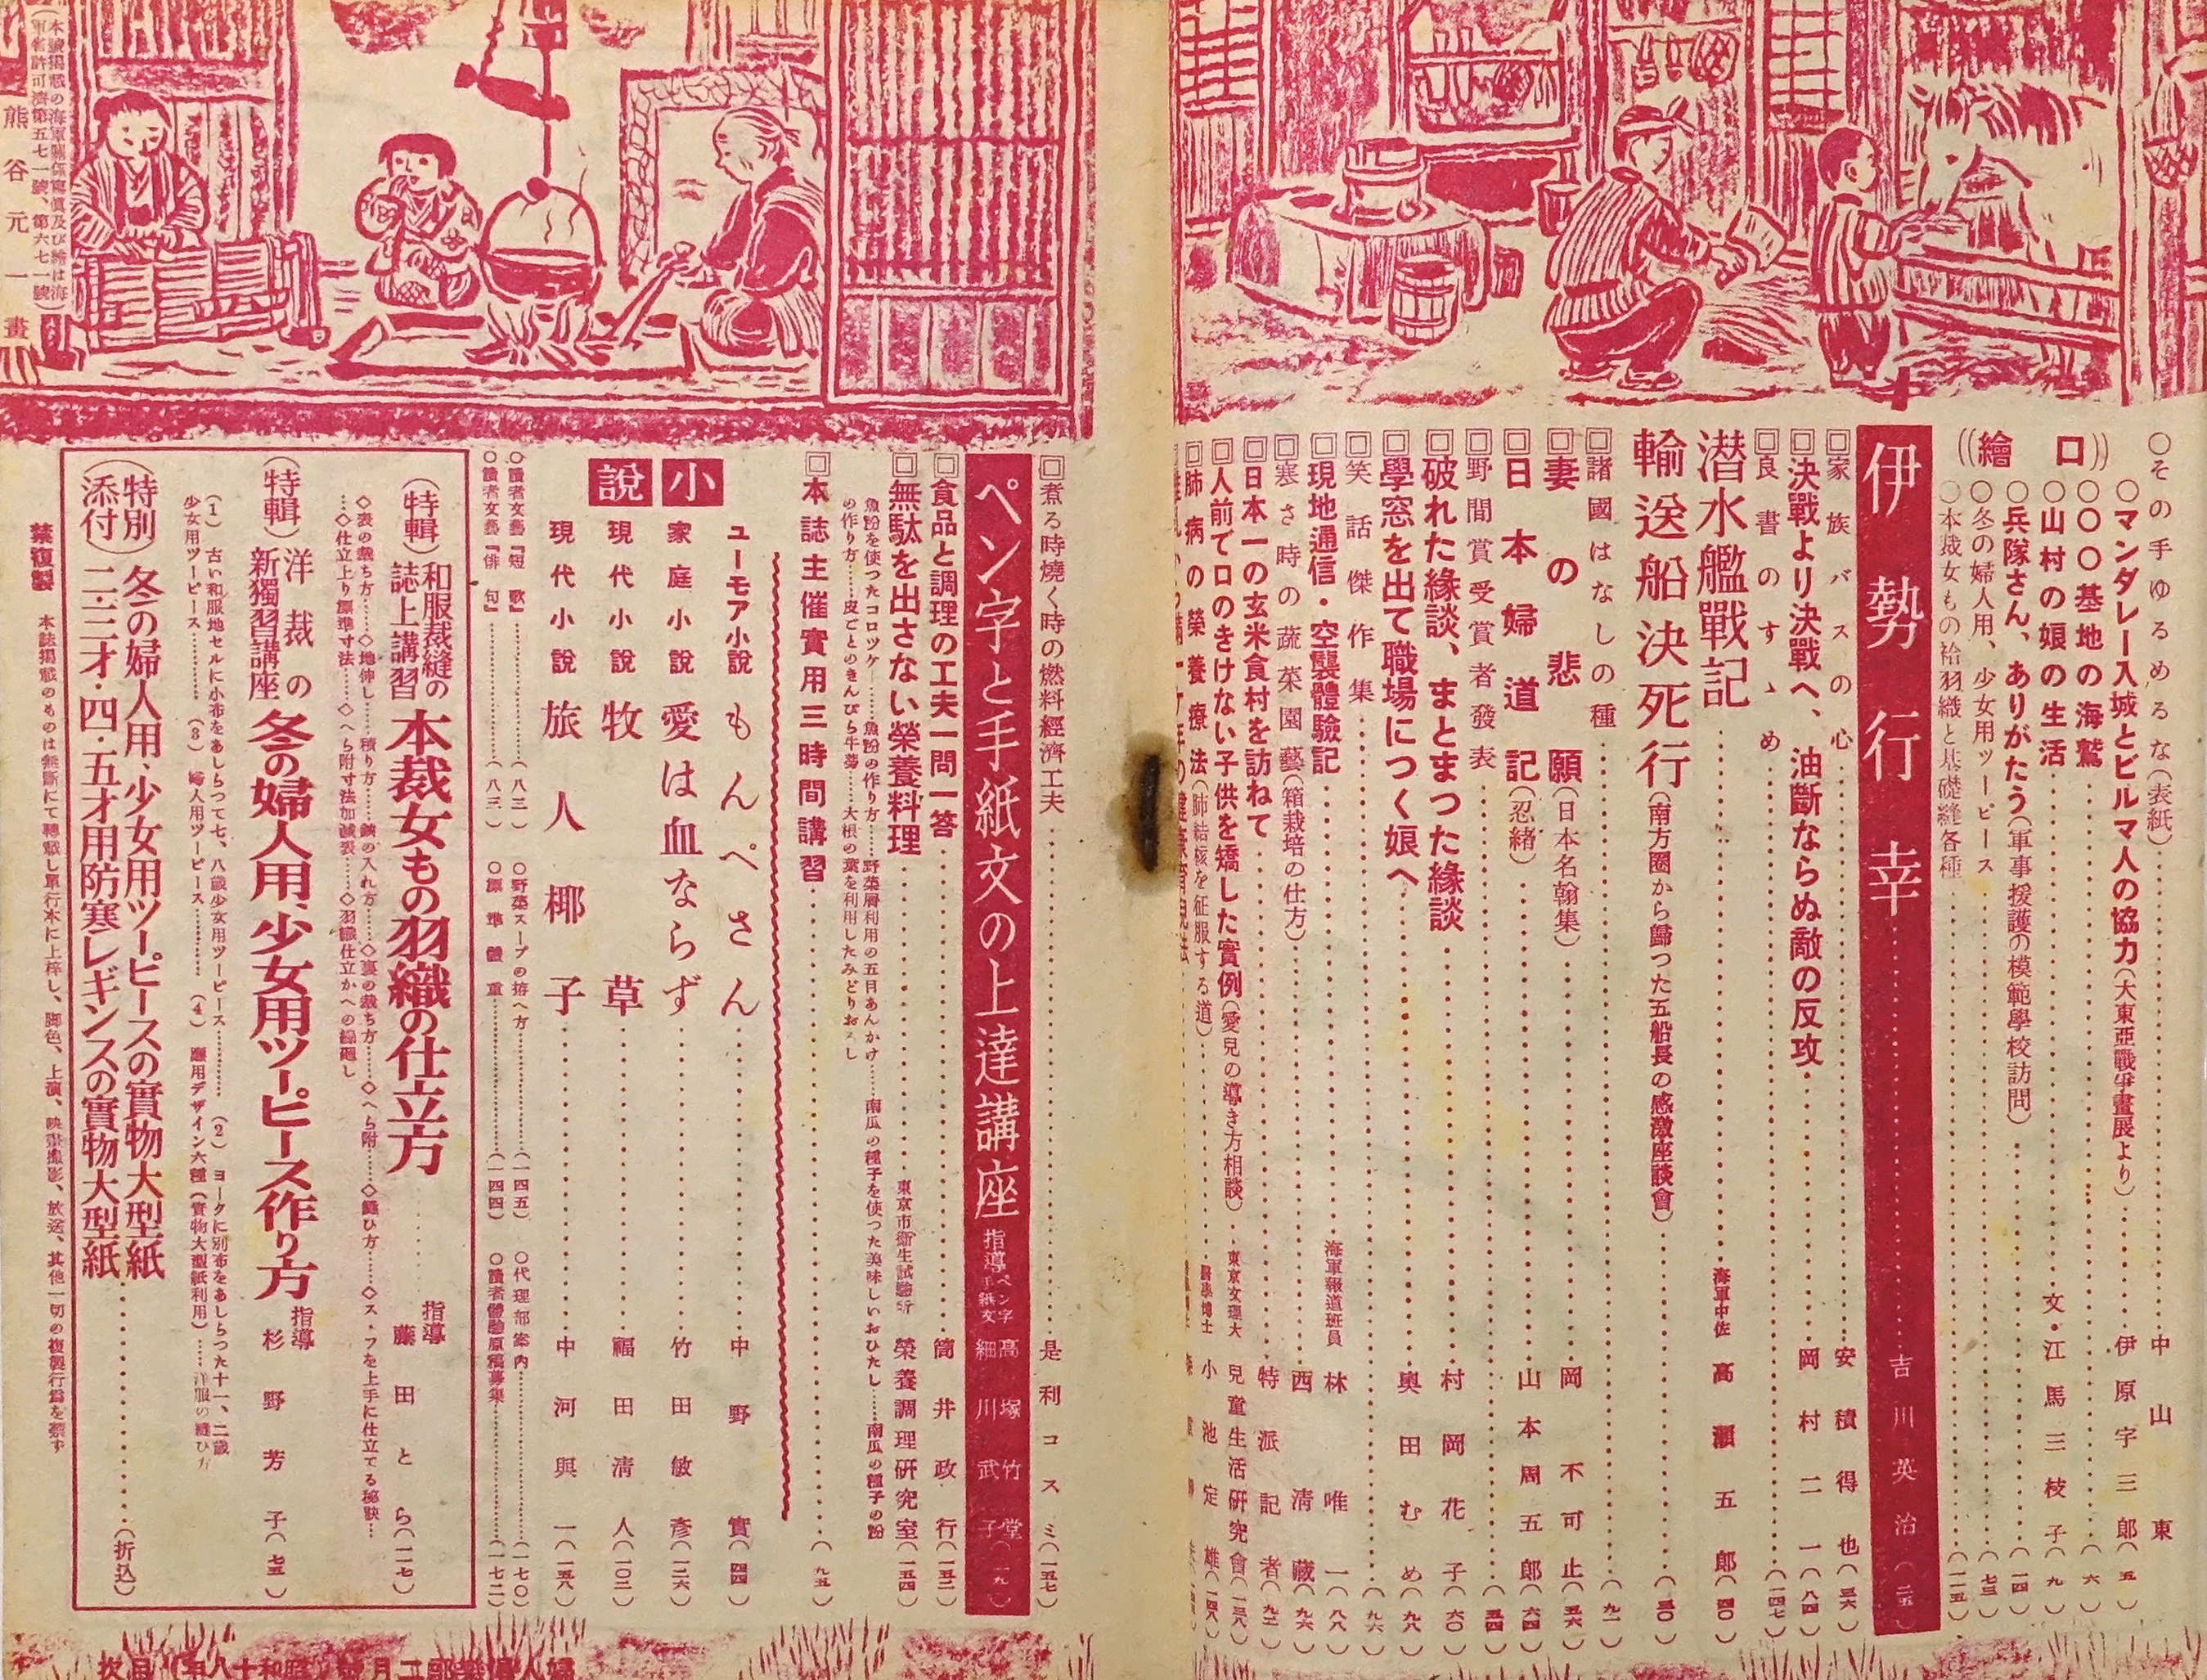 ○その手ゆるめるな(表紙)……中山東
((繪口))
○マンダレー入城とビルマ人の協力(大東亞戰爭畫展より)……伊原宇三郎(五)
○〇〇〇基地の海鷲……(六)
○山村の娘の生活……文・江馬三枝子(九)
○兵隊さん、ありがたう(軍事援護の模範學校訪問)……(一四)
○冬の婦人用、少女用ツーピース……(七三)
○本裁女もの袷羽織と基礎縫各種……(一一五)
伊勢行幸……吉川英治(二五)
回家族バスの心……安積得也(三六)
回決戰より決戰へ、油斷ならぬ敵の反攻……岡村二一(八四)
回良書のすゝめ……(一四七)
潜水艦戰記……海軍中佐 高瀬五郎(四〇)
輸送船決死行(南方圏から歸つた五船長の感激座談會)……(三〇)
回諸國はなしの種……(九一)
回妻の悲願(日本名翰集)……岡不可止(五六)
回日本婦道記(忍緒)……山本周五郎(六四)
回野間賞受賞者發表……(五四)
回破れた緣談、まとまつた緣談……村岡花子(六〇)
回學窓を出て職場につく娘へ……奥田むめ(九八)
回笑話傑作集……(九六)
回現地通信・空襲體驗記……海軍報道班員 林唯一(八八)
回寒さ時の蔬菜園藝(箱栽培の仕方)……西清藏(九六)
回日本一の玄米食村を訪ねて……特派記者(九二)
回人前で口のきけない子供を矯した實例(愛兒の導き方相談)……東京文理大 兒童生活研究會(一三八)
回肺病の榮養療法(肺結核を征服する道)……醫學博士 小池定雄(一四八)
回煮る時燒く時の燃料經濟工夫……是利コスミ(一五七)
ペン字と手紙文の上達講座 指導 ペン字 高塚竹堂 手紙文 細川武子(一九)
回食品と調理の工夫一問一答……筒井政行(一五二)
回無駄を出さない榮養料理……東京市衛生試驗所 榮養調理研究室(一五四)
魚粉を使つたコロツケ……魚粉の作り方……野菜屑利用の五目あんかけ……南瓜の種子を使つた美味しいおひたし……南瓜の種子の粉
の作り方……皮ごとのきんぴら牛蒡……大根の葉を利用したみどりおろし
回本誌主催實用三時間講習……(九五)
小說
ユーモア小說 もんぺさん……中野實(四四)
家庭小說 愛は血ならず……竹田敏彥(一二六)
現代小說 牧草……福田清人(一〇二)
現代小說 旅人椰子……中河與一(一五八)
○讀者文藝『短歌』……(八二) ○野菜スープの拵へ方……(一四五) ○代理部案内……(一七〇)
○讀者文藝『俳句』……(八三) ○標準體重……(一四四) ○讀者體驗原稿募集……(一七二)
(特輯) 和服裁縫の誌上講習 本裁女もの羽織の仕立方……指導 藤田とら(一一七)
◇表の裁ち方……◇地伸し……積り方……鋏の入れ方……◇裏の裁ち方……◇へら附……◇縫ひ方……◇ス・フを上手に仕立てる秘訣…
…◇仕立上り標準寸法……◇へら附寸法加減表……◇羽織仕立かへの繰廻し
(特輯) 洋裁の新獨習講座 冬の婦人用、少女用ツーピース作り方 指導 杉野芳子(七五)
(1) 古い和服地セルに小布をあしらつて七、八歳少女用ツーピース…… (2) ヨークに別布をあしらつた十一、二歳
少女用ツーピース…… (3) 婦人用ツーピース…… (4) 應用デザイン六種(實物大型紙利用)……洋服の縫ひ方
(特別添付) 冬の婦人用、少女用ツーピースの實物大型紙
二・三才・四・五才用防寒レギンスの實物大型紙……(折込)
禁複製 本誌掲載のものは無斷にて轉載し單行本に上梓し、脚色、上演、映畫撮影、放送、其他一切の複製行爲を禁ず
(本誌掲載の海軍關係寫眞及び繪は海
軍省許可濟第五七一號、第六七一號)
熊谷元一畫